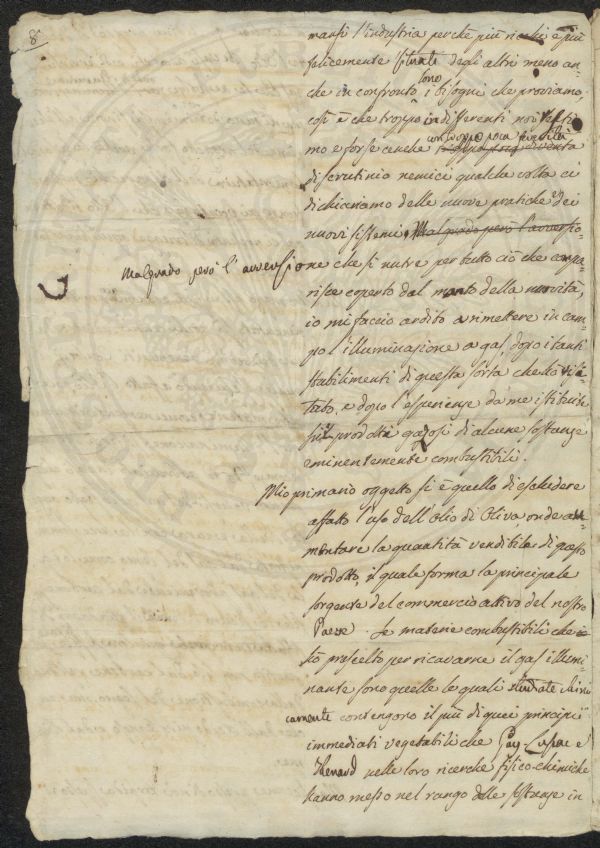 8
mansi l'industria perche più ricchi e più
felicemente situati degli altri meno an-
che in confronto sono i bisogni che proviamo,
così è che troppo indifferenti noi
mo e forse anche con troppo poca
di scrutinio nemici qualche volta ci
dichiariamo delle nuove pratiche e dei
nuovi sistemi. Malgrado però l'avversio-
Malgrado però l'avversione che si nutre per tutto ciò che compa-
risce coperto dal manto della novità,
io mi faccio ardito a rimettere in cam-
po l'illuminazione a gas, dopo i tanti
stabilimenti di questa sorta che ho visi-
tato, e dopo l'esperienze da me istituite
sui prodotti gazosi di alcune sostanze
eminentemente combustibili.
Mio primario oggetto si è quello di escludere
affatto l'uso dell'Olio di Oliva onde au-
mentare la quantità vendibile di questo
prodotto, il quale forma la principale
sorgente del commercio attivo del nostro
Paese. Le materie combustibili che io
ho prescelto per ricavarne il gas illumi-
nante sono quelle le quali studiate chimi
camente contengono il più di quei principii
immediati vegetabili che Gay Lussac e
Thenard nelle loro ricerche fisico-chimiche
hanno messo nel rango delle sostanze in